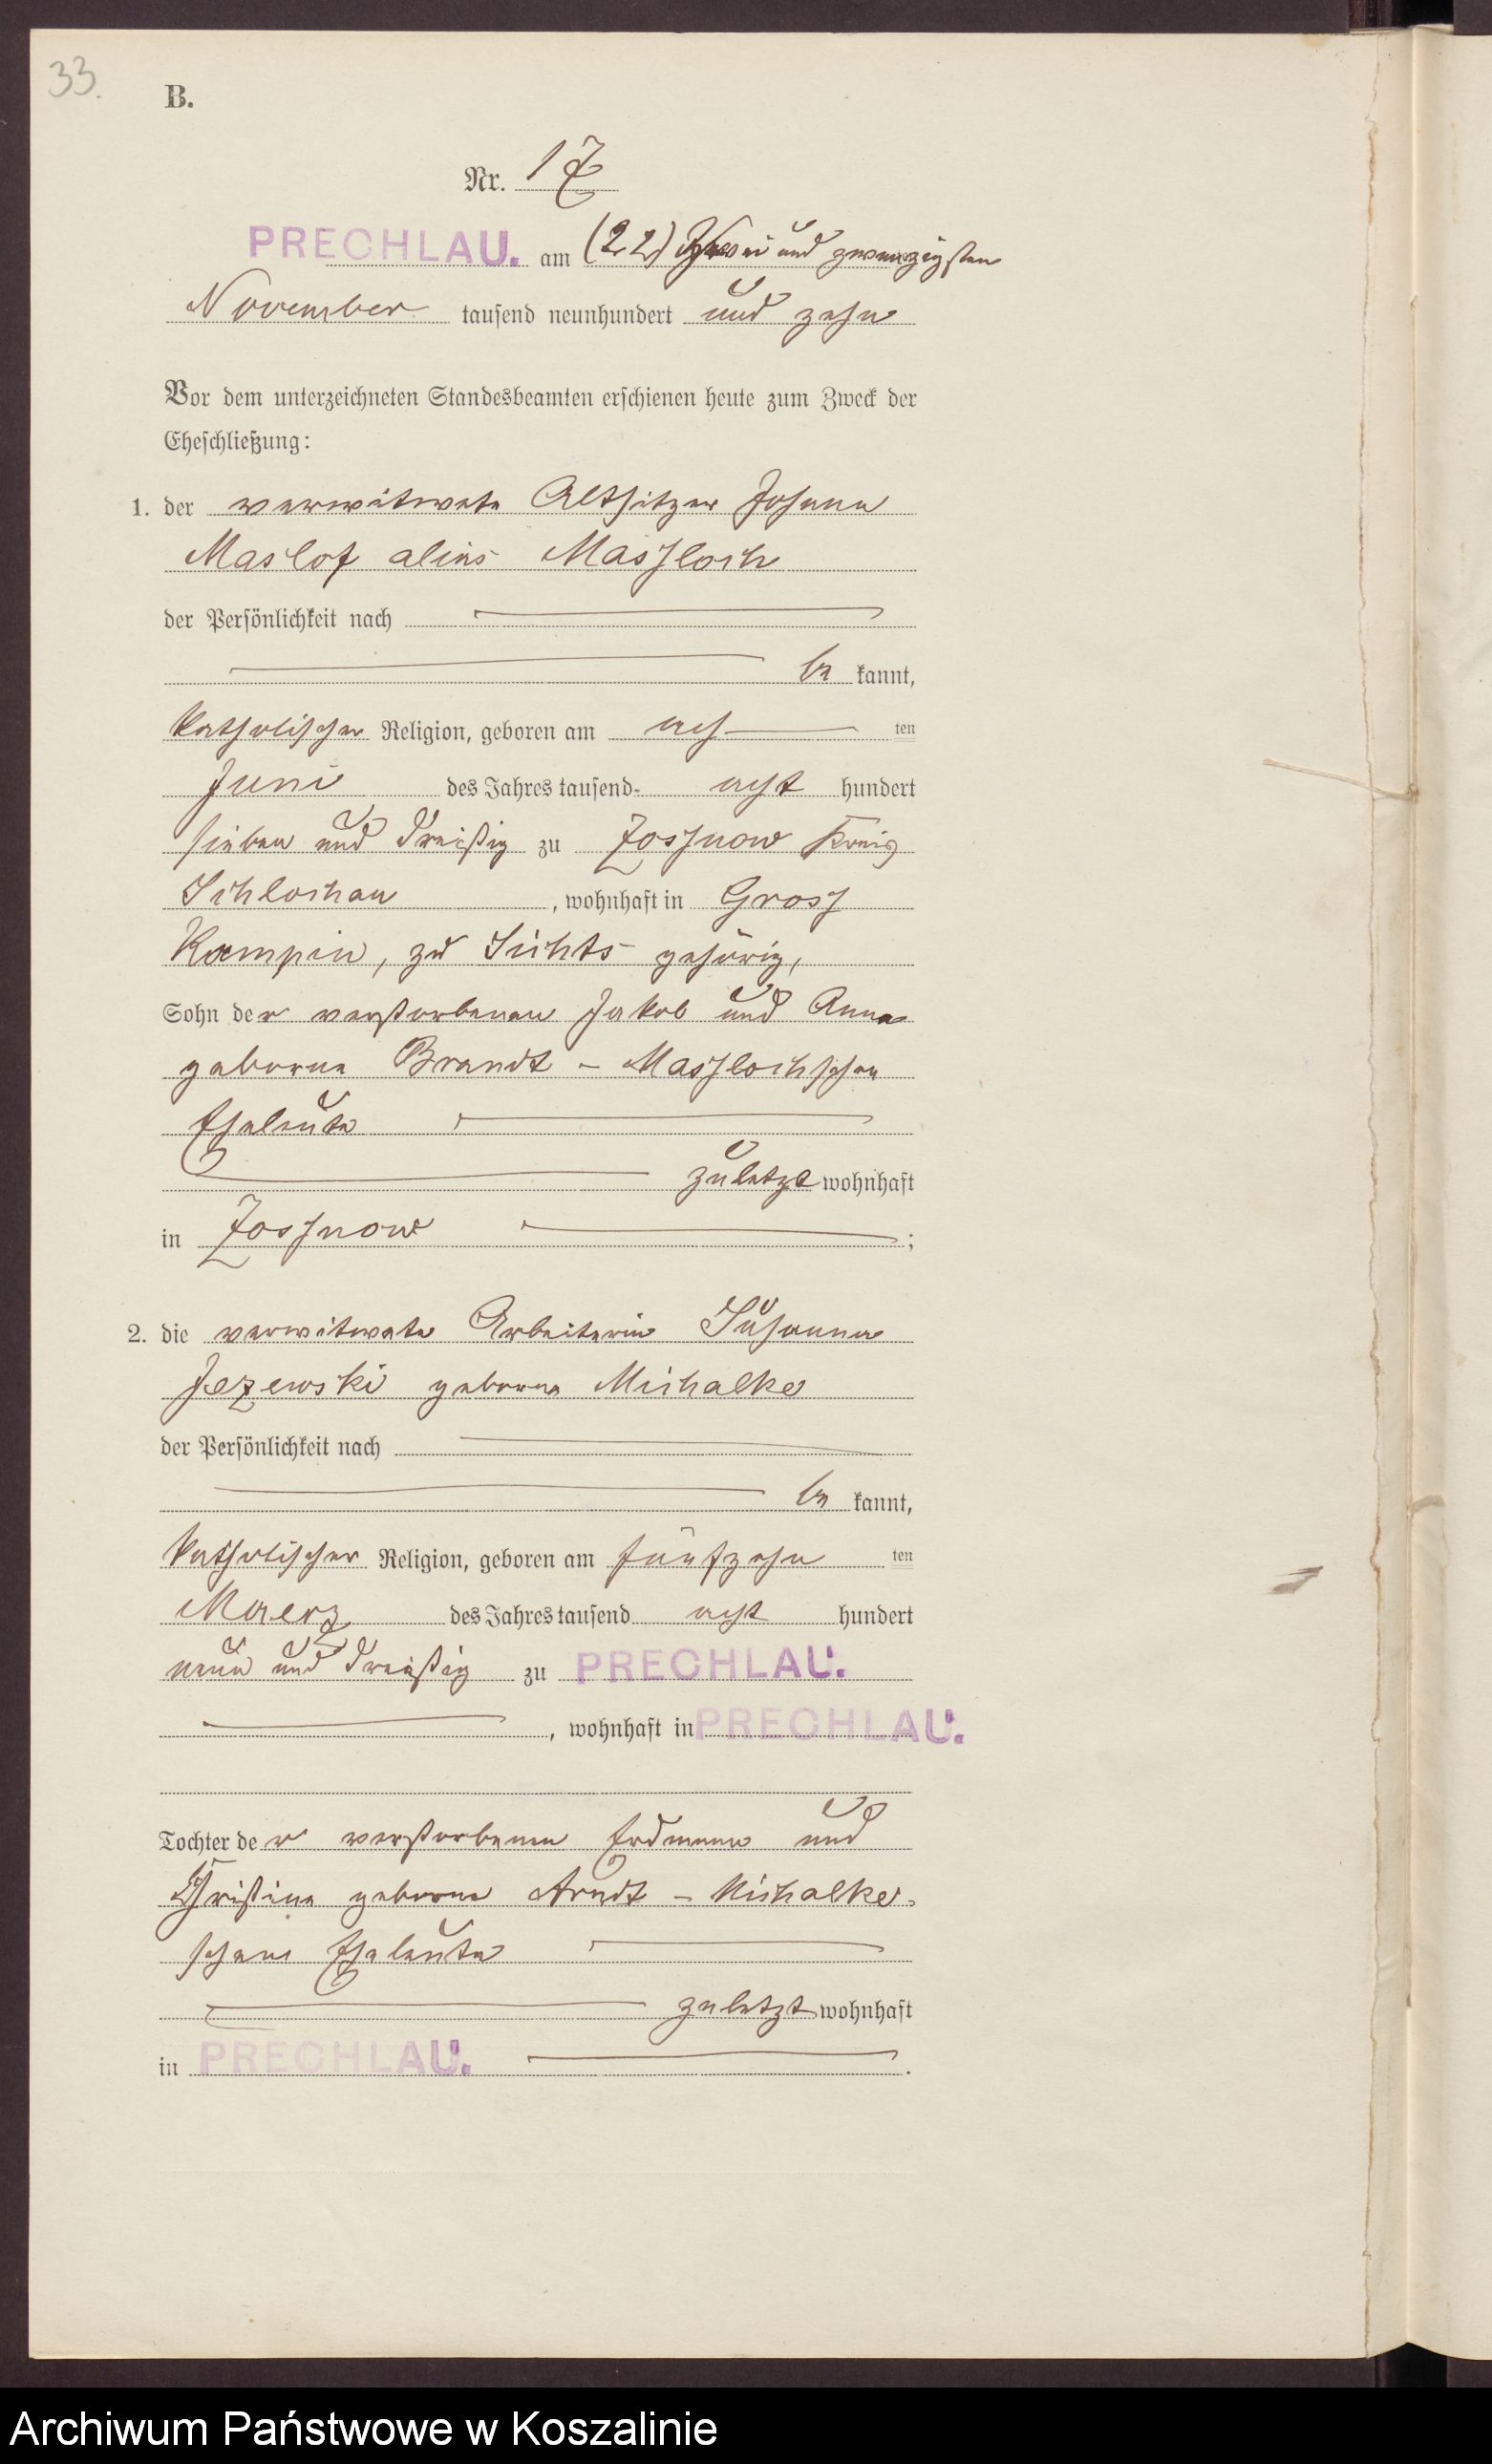 33.
B.
Nr. 17
PRECHLAU. am (22) Zwei und zwanzigsten
November tausend neunhundert und zehn
Vor dem unterzeichneten Standesbeamten erschienen heute zum Zweck der
Eheschließung:
1. der verwitwete Altsitzer Johann
Maslof alias Massloch
der Persönlichkeit nach
be kannt,
katholischer Religion, geboren am ach ten
Juni des Jahres tausend acht hundert
sieben und dreißig zu Zossnow Kreis
Schlochau, wohnhaft in Gross
Kaempin, zu Lichts gehörig,
Sohn der verstorbenen Jakob und Anna
geborne Brandt - Masslochschen
Eheleute
zuletzt wohnhaft
in Zossnow ;
2. die verwitwete Arbeiterin Susanna
Jezewski geborne Michalke
der Persönlichkeit nach
be kannt,
katholischer Religion, geboren am fünfzehn ten
Maerz des Jahres tausend acht hundert
neun und dreißig zu PRECHLAU.
, wohnhaft in PRECHLAU.
Tochter der verstorbenen Erdmann und
Christine geborne Arndt - Michalke-
schen Eheleute
zuletzt wohnhaft
in PRECHLAU. .
Archiwum Państwowe w Koszalinie